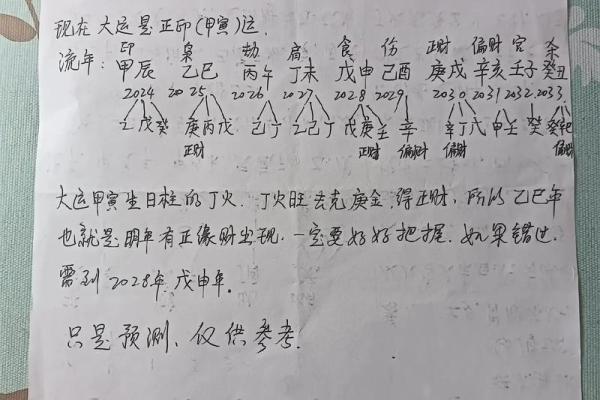 现在大运是正印(甲寅)运.
印 枭 劫 肩 食 伤 正财 偏财 官 杀
流年: 甲辰 乙巳 丙午 丁未 戊申 己酉 庚戌 辛亥 壬子 癸丑
2024 2025 2026 2027 2028 2029 2030 2031 2032 2033
乙戊癸 庚丙戊 己丁 乙己丁 戊庚壬 辛 辛丁戊 甲壬 癸
正财 正财 偏财 偏财 偏财
大运甲寅生日柱的丁火. 丁火旺去克庚金.得正财, 所以乙巳年
也就是明年有正缘财出现. 一定要好好把握. 如果错过.
需到2028年戊申年.
只是预测、仅供参考.